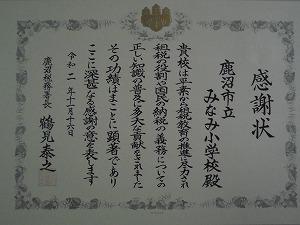 感謝状
鹿沼市立
みなみ小学校殿
貴校は平素から租税教育の推進に尽力され
租税の役割や国民の納税の義務についての
正しい知識の普及に多大な貢献をされました
その功績はまことに顕著であり
ここに深甚なる感謝の意を表します
令和二年十一月十六日
鹿沼税務署長 鶴見泰之